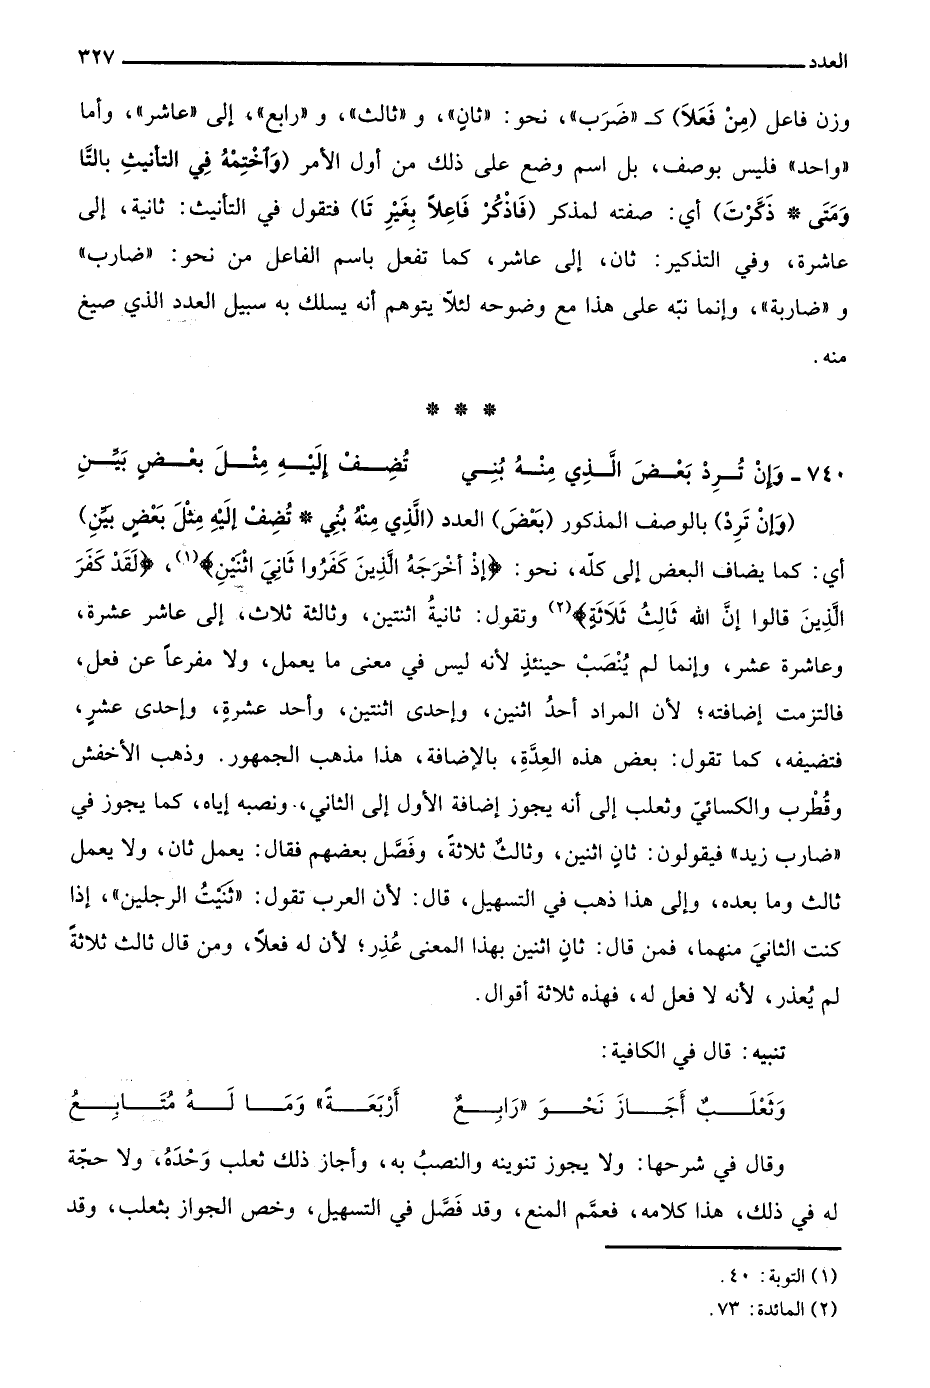 العدد ٣٢٧
وزن فاعل (مِنْ فَعَلاَ) كـ «ضَرَب»، نحو: «ثانٍ»، و «ثالث»، و «رابع»، إلى «عاشر»، وأما
«واحد» فليس بوصف، بل اسم وضع على ذلك من أول الأمر (وَٱخْتِمْهُ فِي التأنيثِ بالتَّا
وَمَتَى * ذَكَّرْتَ) أي: صفته لمذكر (فَاذْكُرْ فَاعِلاً بِغَيْرِ تَا) فتقول في التأنيث: ثانية، إلى
عاشرة، وفي التذكير: ثان، إلى عاشر، كما تفعل باسم الفاعل من نحو: «ضارب»
و «ضاربة»، وإنما نبّه على هذا مع وضوحه لئلاّ يتوهم أنه يسلك به سبيل العدد الذي صيغ
منه.
* * *
٧٤٠ ـ وَإِنْ تُـرِدْ بَعْـضَ الَّـذِي مِنْـهُ بُنِـي تُضِـفْ إِلَيْـهِ مِثْـلَ بعْـضٍ بَيِّـنِ
(وَإِنْ تَرِدْ) بالوصف المذكور (بَعْضَ) العدد (الَّذِي مِنْهُ بُنِي * تُضِفْ إِلَيْهِ مِثْلَ بَعْضٍ بيِّنِ)
أي: كما يضاف البعض إلى كلّه، نحو: ﴿إذْ أخْرَجَهُ الَّذِينَ كَفَرُوا ثَانِيَ اثْنَيْنِ﴾(١)، ﴿لَقَدْ كَفَرَ
الَّذِينَ قالوا إنَّ الله ثَالِثُ ثَلَاثَةٍ﴾(٢) وتقول: ثانيةُ اثنتين، وثالثة ثلاث، إلى عاشر عشرة،
وعاشرة عشر، وإنما لم يُنْصَبْ حينئذٍ لأنه ليس في معنى ما يعمل، ولا مفرعاً عن فعل،
فالتزمت إضافته؛ لأن المراد أحدُ اثنين، وإحدى اثنتين، وأحد عشرةٍ، وإحدى عشرٍ،
فتضيفه، كما تقول: بعض هذه العِدَّةِ، بالإضافة، هذا مذهب الجمهور. وذهب الأخفش
وقُطْرب والكسائيّ وثعلب إلى أنه يجوز إضافة الأول إلى الثاني، ونصبه إياه، كما يجوز في
«ضارب زيد» فيقولون: ثانٍ اثنين، وثالثٌ ثلاثةً، وفَصَّل بعضهم فقال: يعمل ثان، ولا يعمل
ثالث وما بعده، وإلى هذا ذهب في التسهيل، قال: لأن العرب تقول: «ثَنَيْتُ الرجلين»، إذا
كنت الثانيَ منهما، فمن قال: ثانٍ اثنين بهذا المعنى عُذِر؛ لأن له فعلاً، ومن قال ثالث ثلاثةً
لم يُعذر، لأنه لا فعل له، فهذه ثلاثة أقوال.
تنبيه: قال في الكافية:
وَثَعْلَـبٌ أَجَـازَ نَحْـوَ «رَابِـعٌ أَرْبَعَـةً» وَمَـا لَـهُ مُتَـابِـعُ
وقال في شرحها: ولا يجوز تنوينه والنصبُ به، وأجاز ذلك ثعلب وَحْدَهُ، ولا حجّة
له في ذلك، هذا كلامه، فعمَّم المنع، وقد فَصَّل في التسهيل، وخص الجواز بثعلب، وقد
(١) التوبة: ٤٠.
(٢) المائدة: ٧٣.